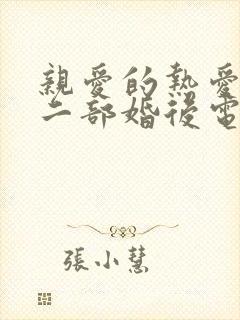 親愛的熱愛
二部婚後電
張小慧